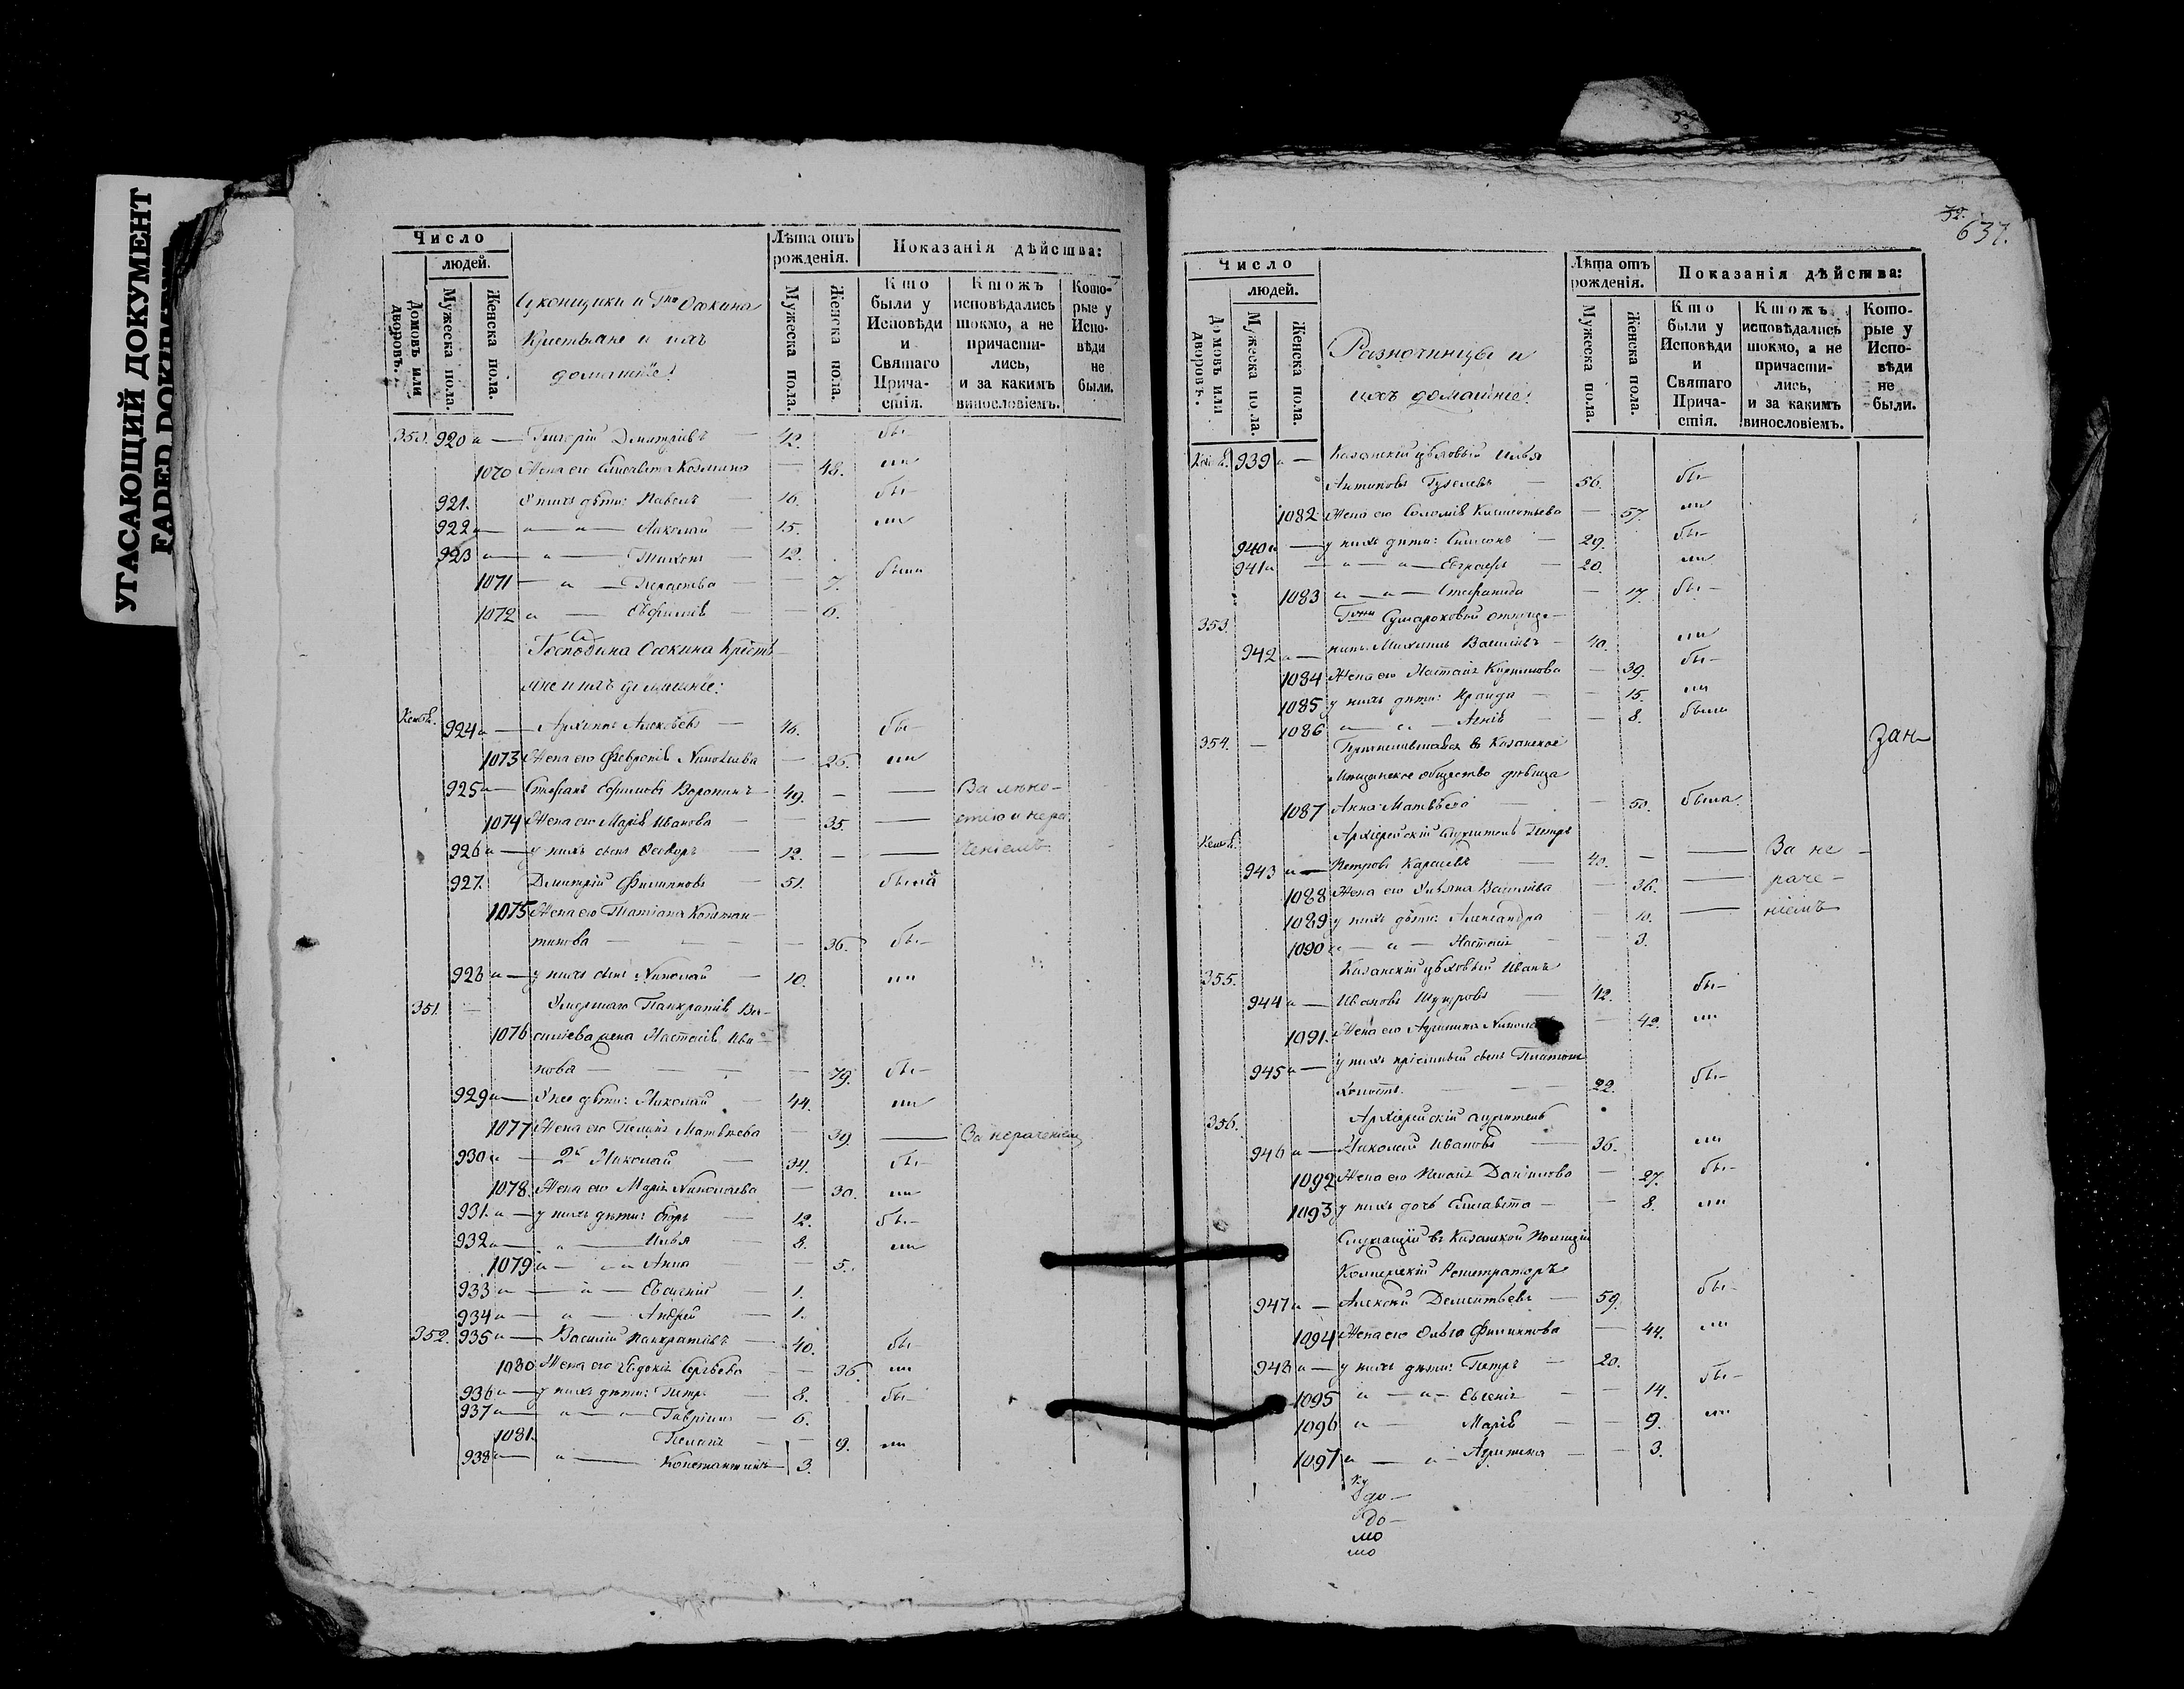 УГАСАЮЩИЙ ДОКУМЕНТ
FADED
Число
людей.
Домовъ или дворовъ.
Мужеска пола.
Женска пола.
и
Крестьяне и ихъ
домашніе:
Лѣта отъ рожденія.
Мужеска пола.
Женска пола.
Показанія дѣйства:
Кто были у Исповѣди и Святаго Прича-стія.
Ктожъ исповѣдались токмо, а не причасти-лись, и за какимъ винословіемъ.
Кото-рые у Испо-вѣди не были.
350. 920 Григорій Дмитріевъ 42. бы-
1070 Жена его Елисавета Козмина 48. ли
921. У нихъ дѣти: Павелъ 16. бы-
922 Николай 15. ли
923 Тихонъ 12.
1071 7. были
1072 6.
Господина Осокина Крестья-
яне и ихъ домашніе:
924 46. бы-
1073 Жена его Февронія Николаева 26. ли
925 Стефанъ Ефимовъ Воронинъ 49. За лѣно-
1074 Жена его Марія Иванова 35. стію и нера
926 у нихъ сынъ Ѳеодоръ 12. ченіемъ
927. Дмитрій Филипповъ 51.
1075 Жена его Татіана Констан-
тинова 36. бы-
928 у нихъ сынъ Николай 10. ли
351. Умершаго Панкратія Ва-
1076 силіева жена Настасія Ива-
нова 79. бы-
929 У нее дѣти: Николай 44. ли
1077 Жена его Пелагія Матвѣева 39. За нераченіемъ
930 2й Николай 34. бы-
1078. Жена его Марія Николаева 30. ли
931. у нихъ дѣти: Егоръ 12. бы-
932 Илья 8. ли
1079 Анна 5.
933 Евгеній 1.
934 Андрей 1.
352. 935 Василій Панкратіевъ 40. бы-
1080 Жена его Евдокія Сергѣева 36. ли
936 у нихъ дѣти: Петръ 8. бы-
937 Гавріилъ 6.
1081. Пелагія 9. ли
938 Константинъ 3.
32.
637.
Число
людей.
Домовъ или дворовъ.
Мужеска пола.
Женска пола.
Разночинцы и
ихъ домашніе:
Лѣта отъ рожденія.
Мужеска пола.
Женска пола.
Показанія дѣйства:
Кто были у Исповѣди и Святаго Прича-стія.
Ктожъ исповѣдались токмо, а не причасти-лись, и за какимъ винословіемъ.
Кото-рые у Испо-вѣди не были.
939 Казанскій цѣховый Илья
Антиповъ 56. бы-
1082 Жена его Соломія Климентьева 57. ли
940 у нихъ дѣти: Симеонъ 29. бы-
941 Евграфъ 20. ли
1083 Стефанида 17. бы-
353. Сумароковой отпуще-
942 Василіевъ 40. ли
1084 Жена его Настасія Кирилова 39. бы-
1085 у нихъ дѣти: Ираида 15. ли
1086 8. были
354. въ Казанское зан
Мѣщанское общество дѣвица
1087 Анна Матвѣева 50. была.
Архіерейскій служитель Петръ
943 Петровъ 40. За не
1088 Жена его Ульяна Василіева 36. раче-
1089 у нихъ дѣти: Александра 10. ніемъ
1090 Настасія 3.
355. Казанскій цѣховый Иванъ
944 Ивановъ 42. бы-
1091. Жена его 42. ли
945 у нихъ пріемный сынъ Платонъ
холостъ. 22. бы-
356. Архіерейскій служитель
946 Николай Ивановъ 36. ли
1092 Жена его Даніилова 27. бы-
1093 у нихъ дочь Елисавета 8. ли
Служащій въ Казанской Полиціи
Коллежскій Регистраторъ
947 Алексѣй Дементьевъ 59. бы-
1094 Жена его Ольга Филиппова 44. ли
948 у нихъ дѣти: Петръ 20.
1095 Евгенія 14. бы-
1096 Марія 9. ли
1097 3.
до
мо
мо